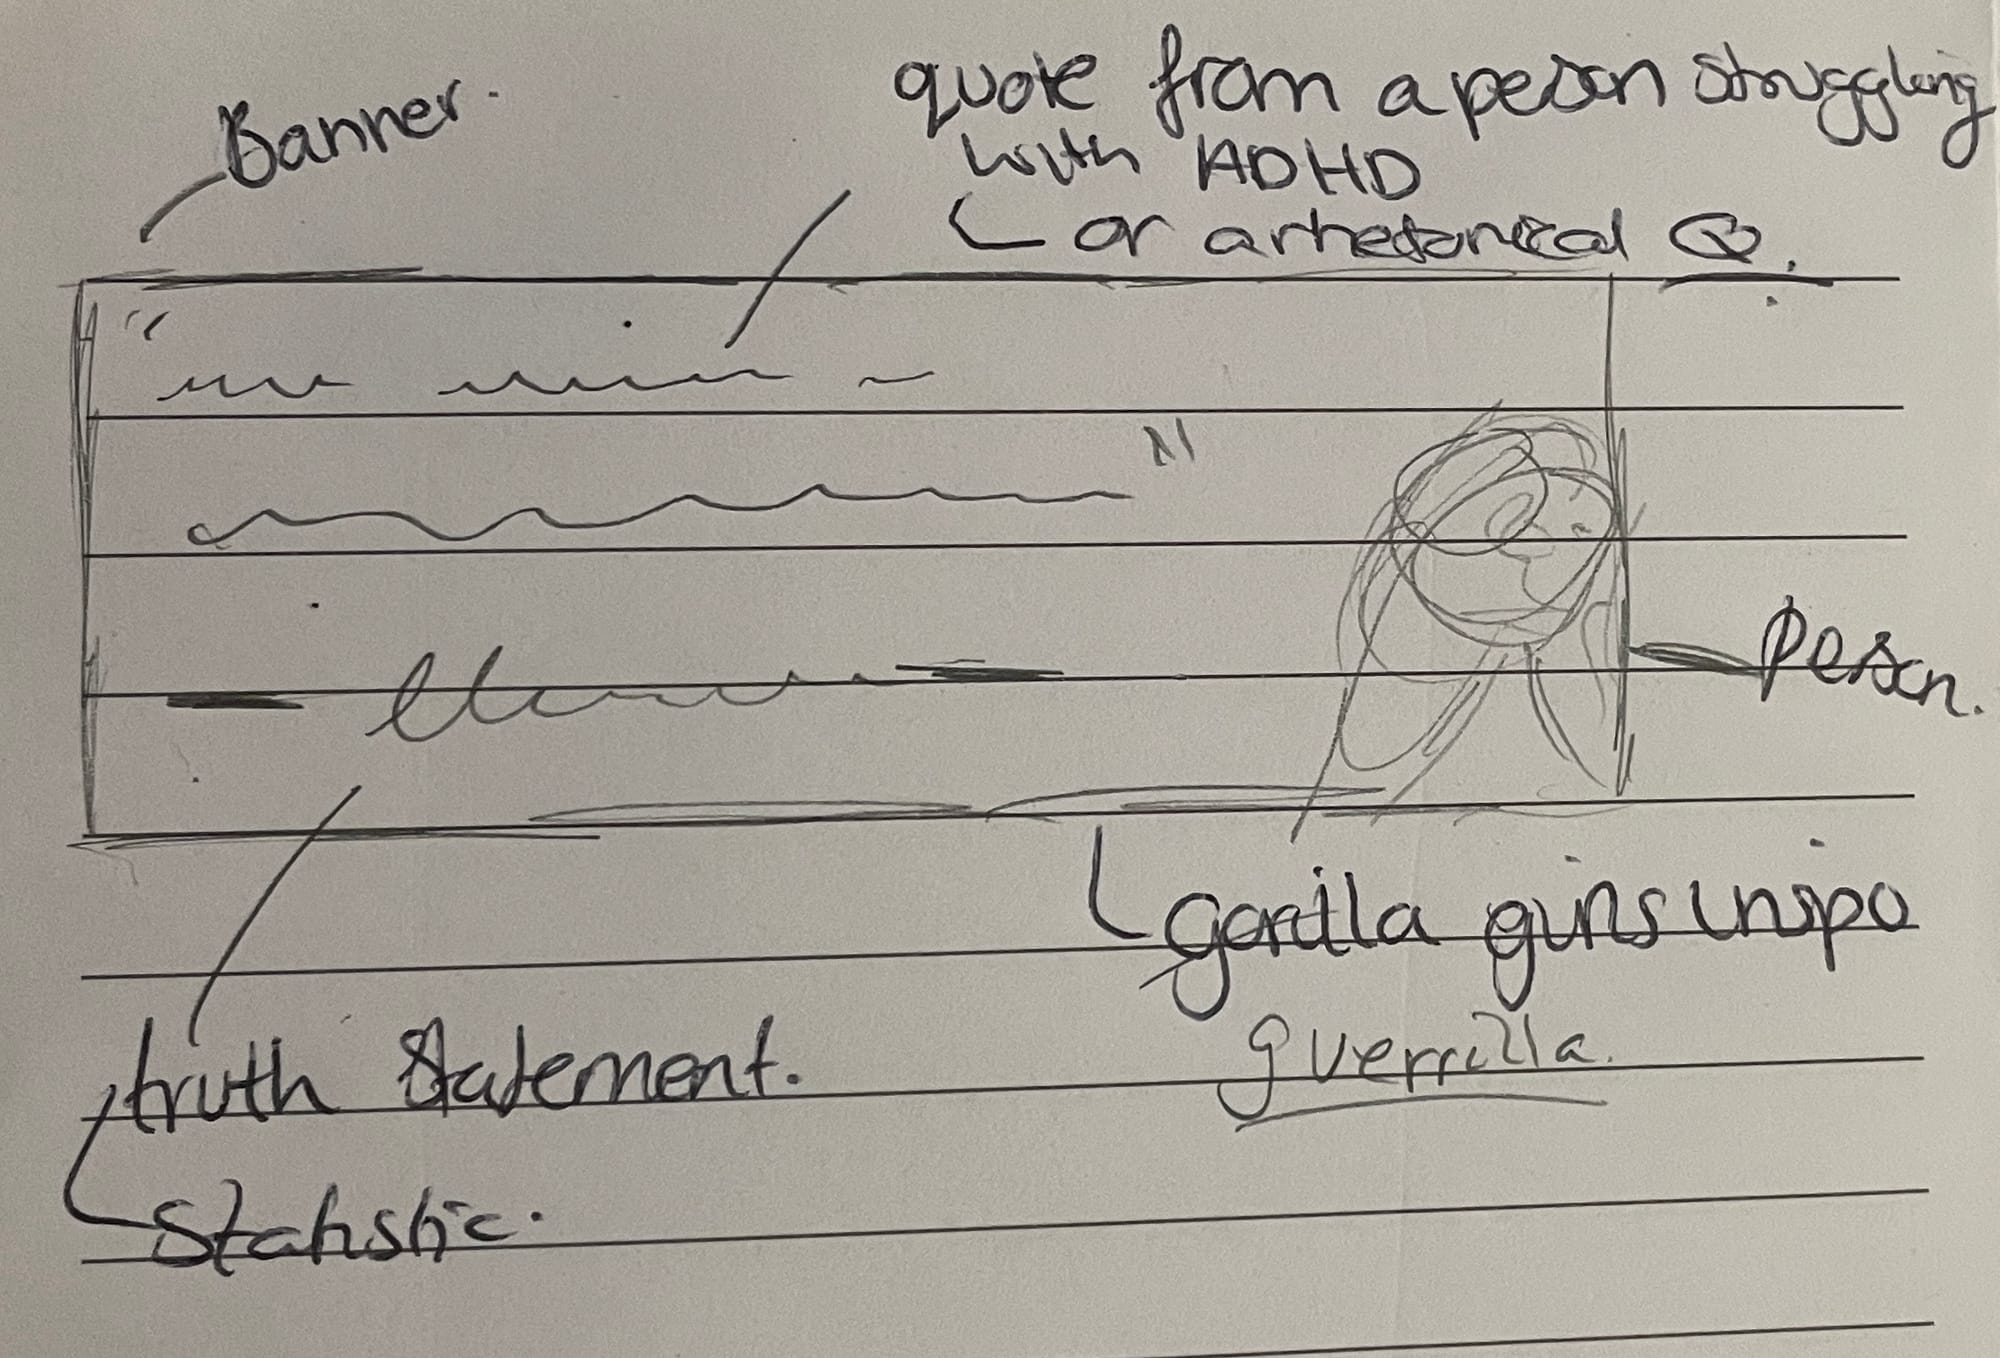 Banner.
quote from a peson struggling
with ADHD
or a rhetorical Q.
"
"
Peson.
gorilla girls inspo
guerrilla.
truth statement.
Statistic.